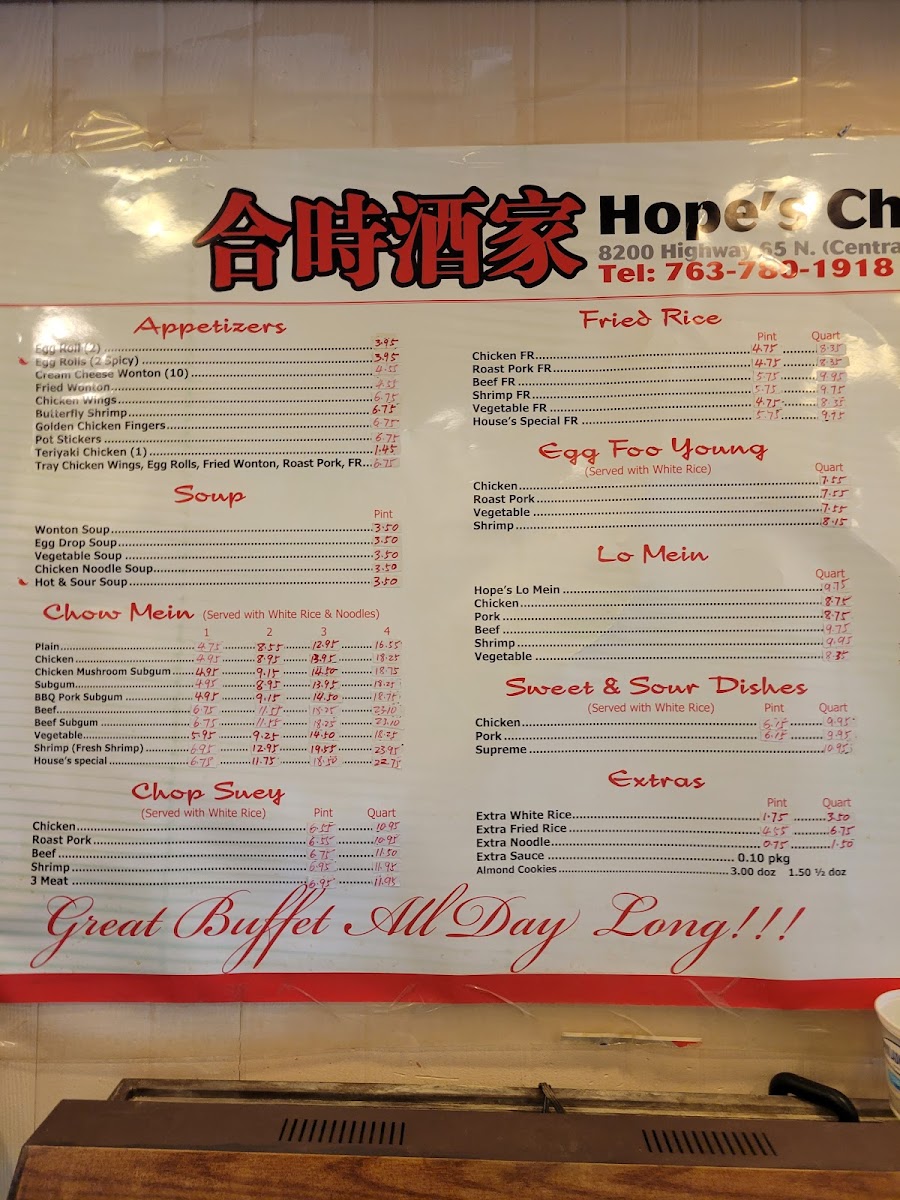 合時酒家 Hope's Ch
8200 Highway 65 N. (Centra
Tel: 763-780-1918
Appetizers
Egg Roll (2) 3.95
Egg Rolls (2 Spicy) 3.95
Cream Cheese Wonton (10) 4.55
Fried Wonton 4.55
Chicken Wings 6.75
Butterfly Shrimp 6.75
Golden Chicken Fingers 6.75
Pot Stickers 6.75
Teriyaki Chicken (1) 1.45
Tray Chicken Wings, Egg Rolls, Fried Wonton, Roast Pork, FR... 6.75
Soup
Pint
Wonton Soup 3.50
Egg Drop Soup 3.50
Vegetable Soup 3.50
Chicken Noodle Soup 3.50
Hot & Sour Soup 3.50
Chow Mein (Served with White Rice & Noodles)
1 2 3 4
Plain 4.75 8.55 12.95 16.55
Chicken 4.95 8.95 13.95 18.25
Chicken Mushroom Subgum 4.95 9.15 14.50 18.75
Subgum 4.95 8.95 13.95 18.25
BBQ Pork Subgum 4.95 9.15 14.50 18.75
Beef 6.75 11.55 18.25 23.10
Beef Subgum 6.75 11.55 18.25 23.10
Vegetable 5.95 9.25 14.50 18.25
Shrimp (Fresh Shrimp) 6.95 12.95 19.55 23.95
House's special 6.75 11.75 18.50 22.75
Chop Suey
(Served with White Rice) Pint Quart
Chicken 6.55 10.95
Roast Pork 6.55 10.95
Beef 6.75 11.50
Shrimp 6.95 11.95
3 Meat 6.95 11.95
Fried Rice
Pint Quart
Chicken FR 4.75 8.35
Roast Pork FR 4.75 8.35
Beef FR 5.75 9.95
Shrimp FR 5.75 9.75
Vegetable FR 4.75 8.35
House's Special FR 5.75 9.95
Egg Foo Young
(Served with White Rice) Quart
Chicken 7.55
Roast Pork 7.55
Vegetable 7.55
Shrimp 8.15
Lo Mein
Quart
Hope's Lo Mein 9.75
Chicken 8.75
Pork 8.75
Beef 9.75
Shrimp 9.95
Vegetable 8.35
Sweet & Sour Dishes
(Served with White Rice) Pint Quart
Chicken 6.15 9.95
Pork 6.15 9.95
Supreme 10.95
Extras
Pint Quart
Extra White Rice 1.75 3.50
Extra Fried Rice 4.55 6.75
Extra Noodle 0.75 1.50
Extra Sauce 0.10 pkg
Almond Cookies 3.00 doz 1.50 ½ doz
Great Buffet All Day Long!!!